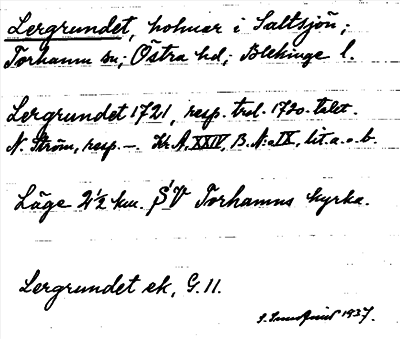 Lergrundet, holmar i Saltsjön;
Torhamn sn; Östra hd; Blekinge l.
Lergrundet 1721, resp. trol. 1780-talet.
N. Ström, resp. –. Kr. A. XXIV, B. N:o IX, lit. a. o. b.
Läge 2½ km. SV Torhamns kyrka.
Lergrundet ek, G. 11.
1937.